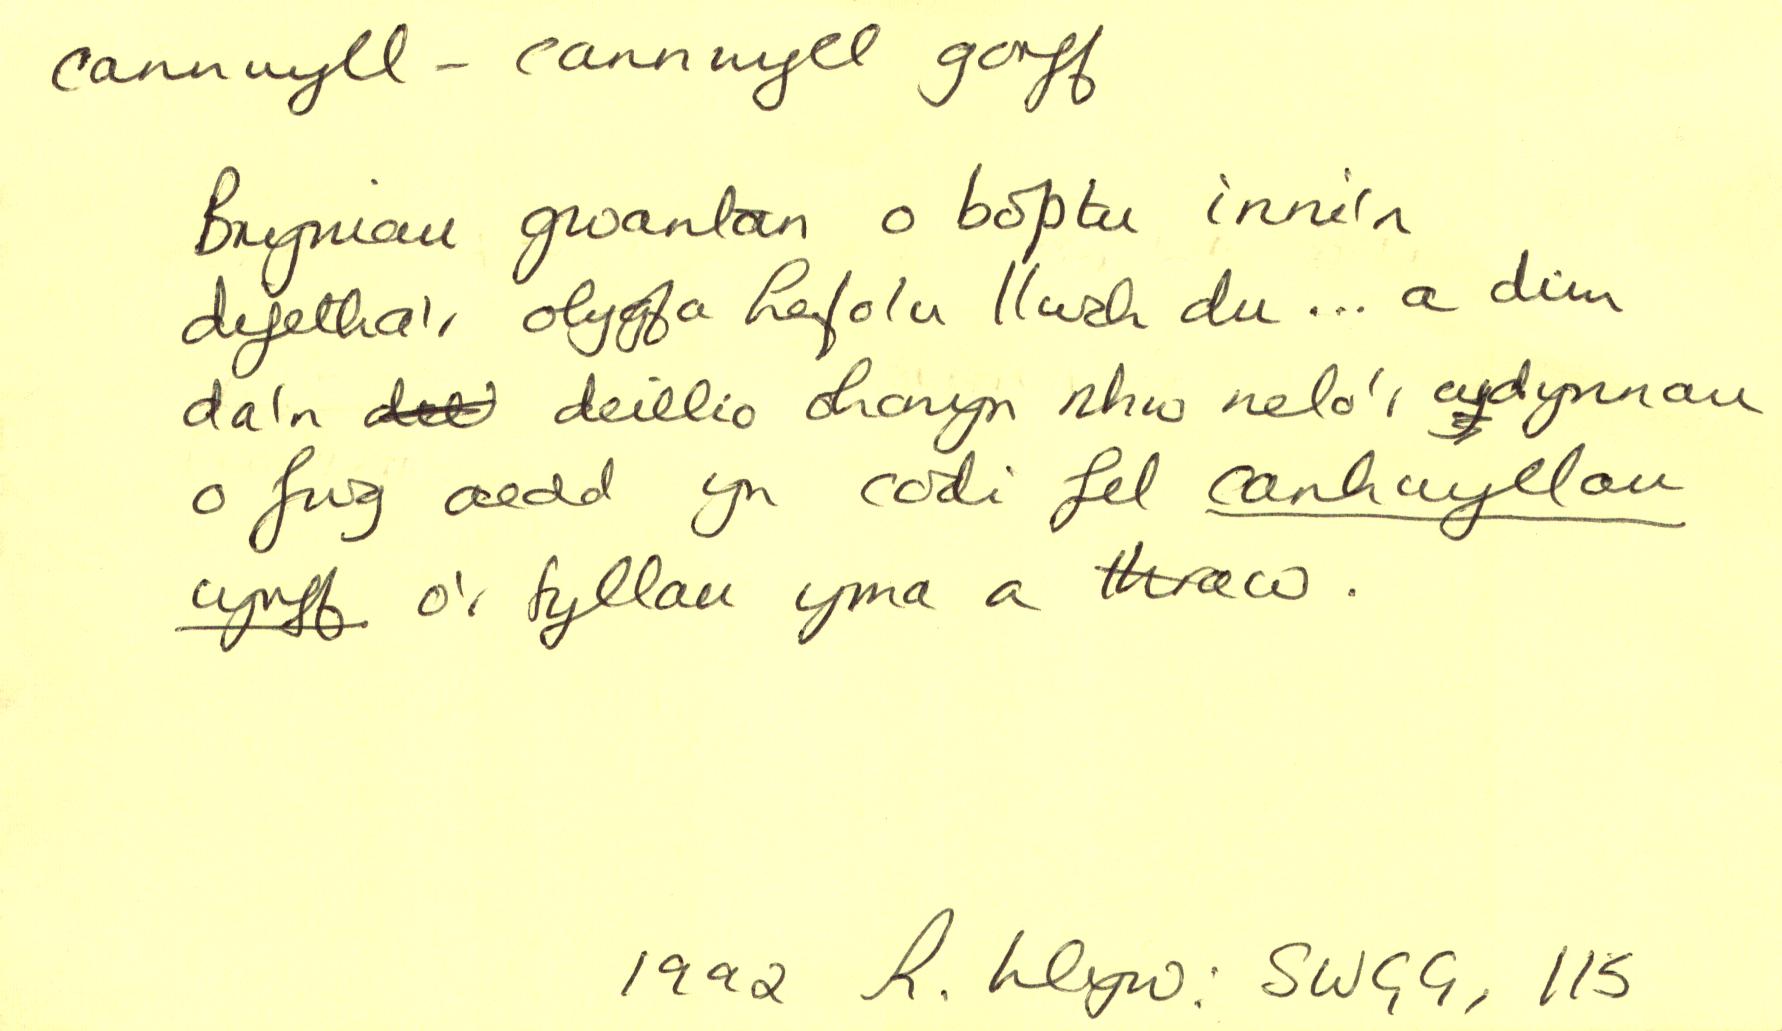 cannwyll - cannwyll gorff
Bryniau gwantan o bõptu inni'n
difetha'r olygfa hefo'u llwch du ... a dim
da'n deillio ohonyn nhw nelo'r cydynnau
o fwg oedd yn codi fel canhwyllau
cyrff o'r tyllau yma a thraw.
1992 R. Llwyw: SWGG, 115